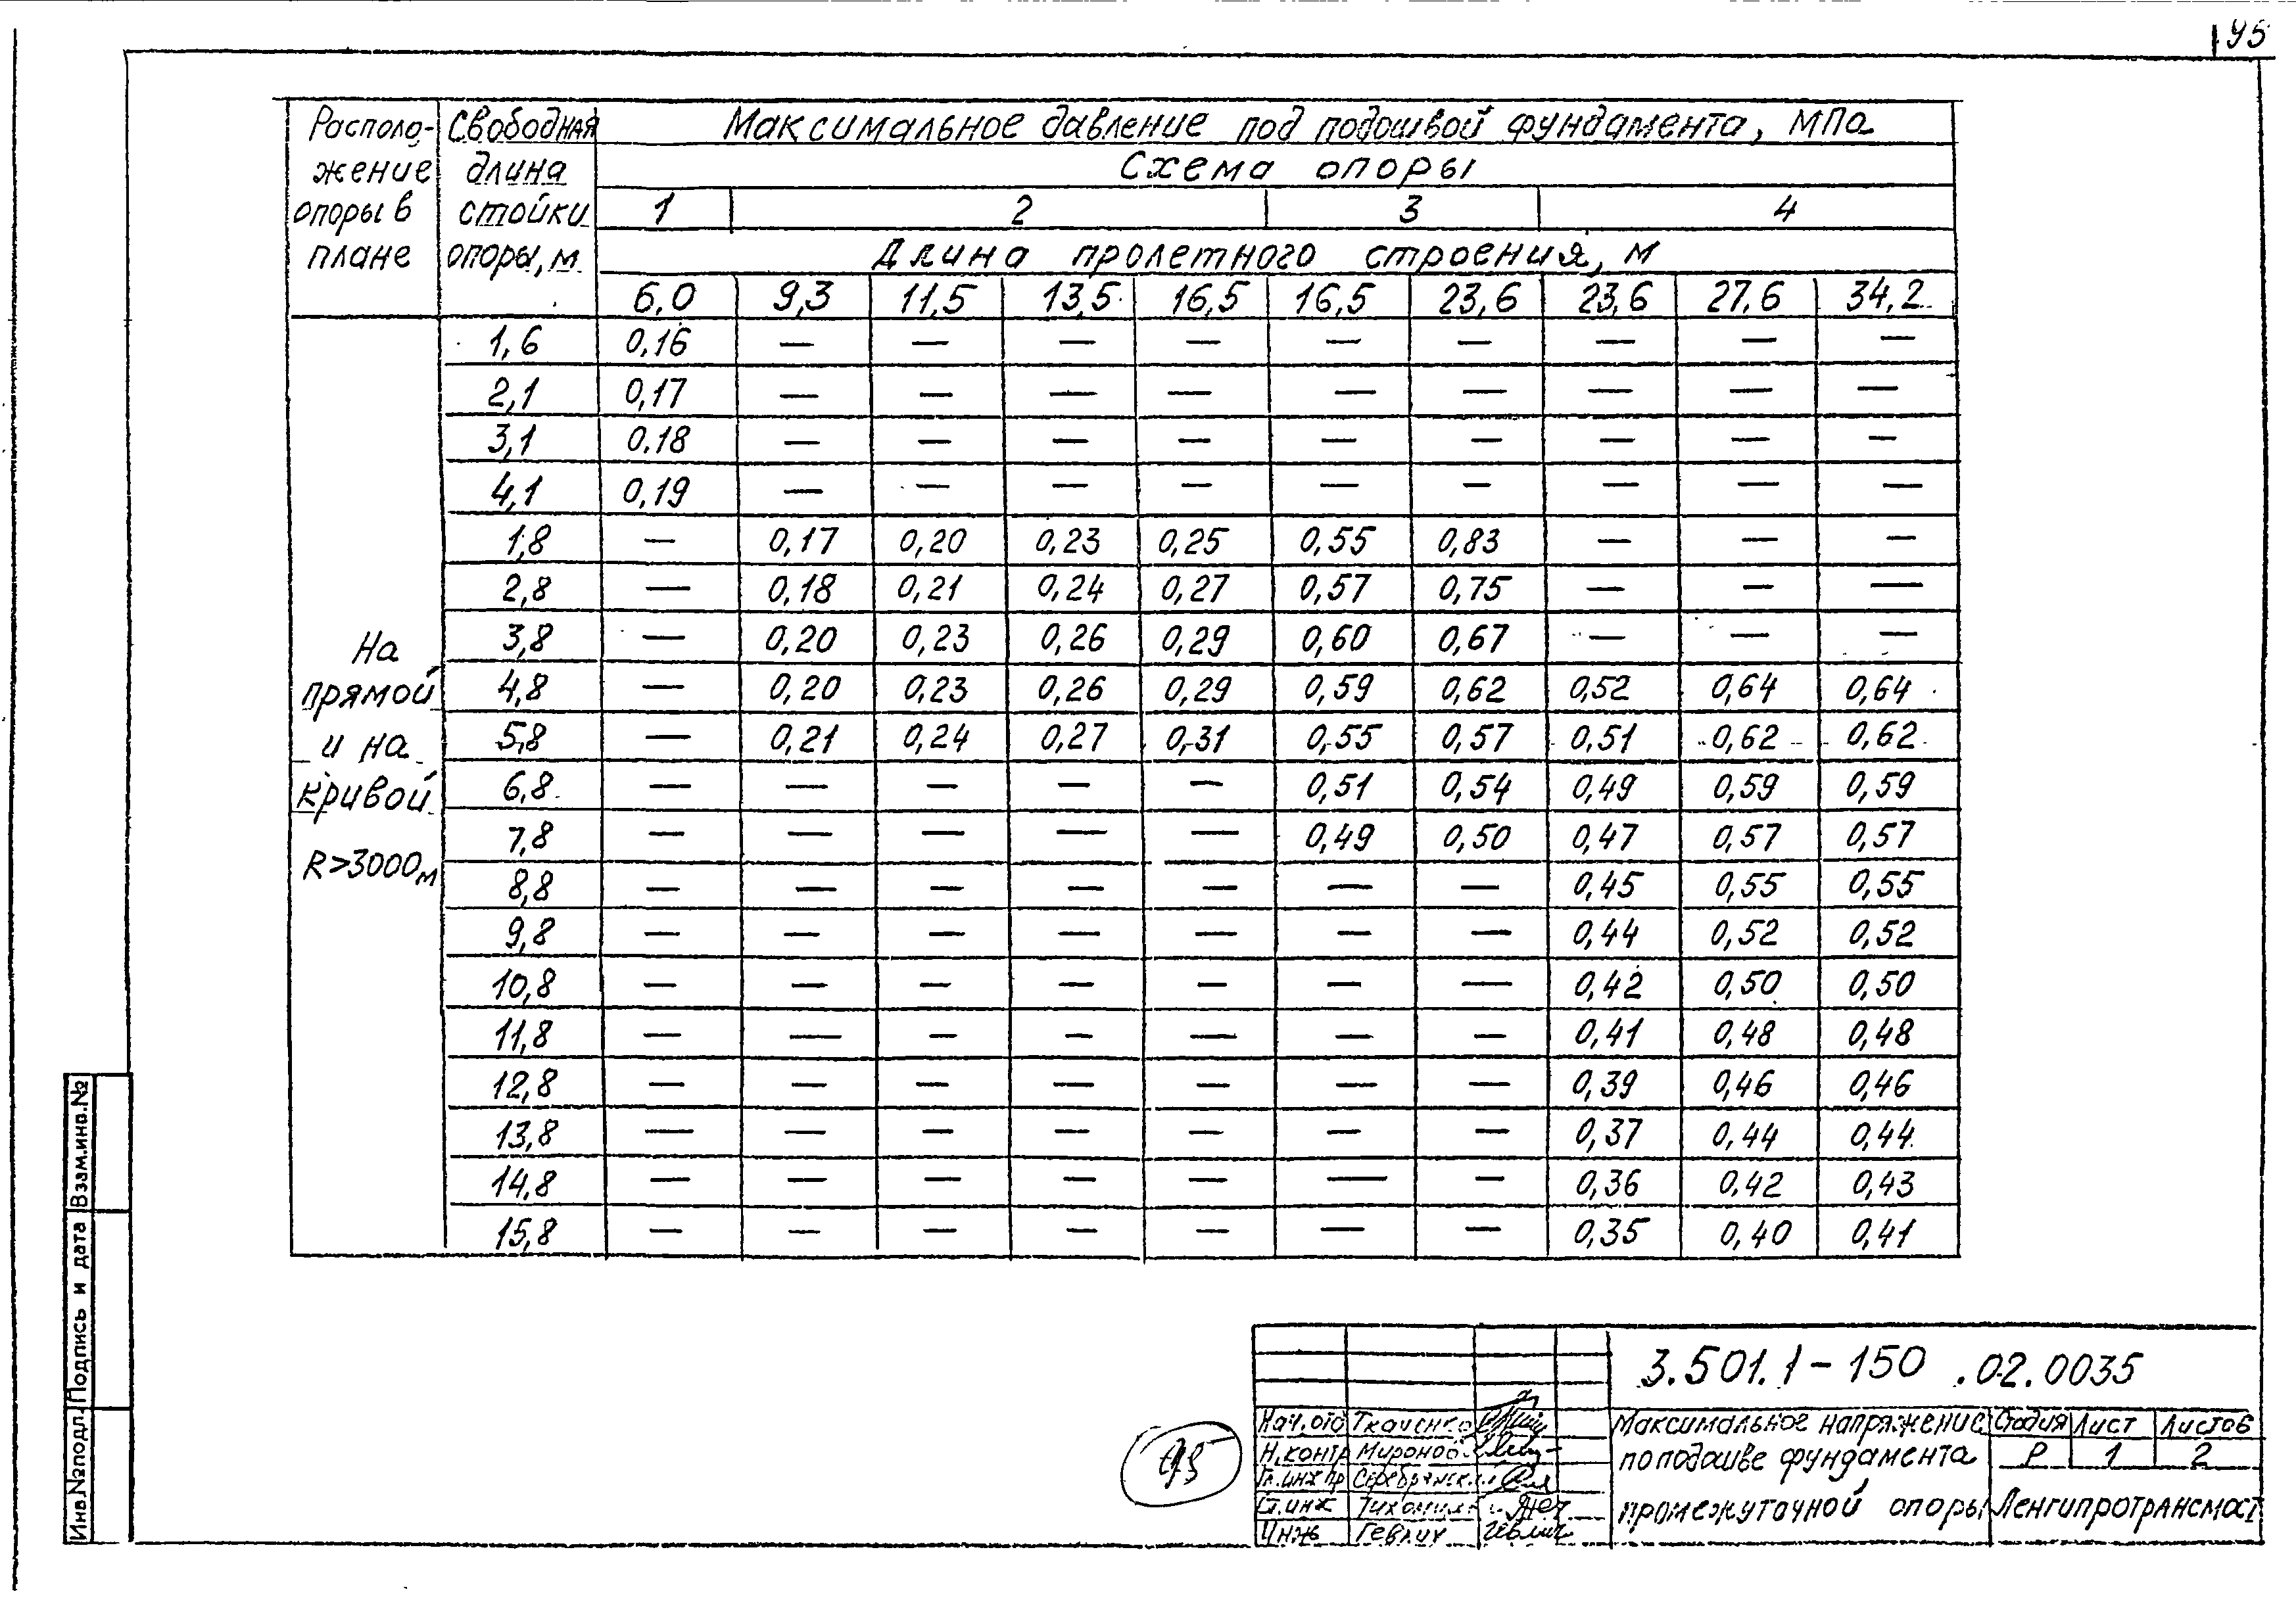 У5
Располо-жение опоры в плане
Свободная длина стойки опоры, м
Максимальное давление под подошвой фундамента, МПа
Схема опоры
1 2 3 4
Длина пролетного строения, м
6,0 9,3 11,5 13,5 16,5 16,5 23,6 23,6 27,6 34,2
1,6 0,16 — — — — — — — — —
2,1 0,17 — — — — — — — — —
3,1 0,18 — — — — — — — — —
4,1 0,19 — — — — — — — — —
1,8 — 0,17 0,20 0,23 0,25 0,55 0,83 — — —
2,8 — 0,18 0,21 0,24 0,27 0,57 0,75 — — —
3,8 — 0,20 0,23 0,26 0,29 0,60 0,67 — — —
4,8 — 0,20 0,23 0,26 0,29 0,59 0,62 0,52 0,64 0,64
5,8 — 0,21 0,24 0,27 0,31 0,55 0,57 0,51 0,62 0,62
6,8 — — — — — 0,51 0,54 0,49 0,59 0,59
7,8 — — — — — 0,49 0,50 0,47 0,57 0,57
8,8 — — — — — — — 0,45 0,55 0,55
9,8 — — — — — — — 0,44 0,52 0,52
10,8 — — — — — — — 0,42 0,50 0,50
11,8 — — — — — — — 0,41 0,48 0,48
12,8 — — — — — — — 0,39 0,46 0,46
13,8 — — — — — — — 0,37 0,44 0,44
14,8 — — — — — — — 0,36 0,42 0,43
15,8 — — — — — — — 0,35 0,40 0,41
На
прямой
и на
кривой
R>3000м
Взам.инв.№
Подпись и дата
Инв.№подл.
3.501.1-150 .02.0035
Нач.отд Ткаченко
Н.контр Миронов
Гл.инж пр Серебрянск
Ст.инж Тихомир
Инж Гевлич Гевлич
Максимальное напряжение
по подошве фундамента
промежуточной опоры
Стадия Лист Листов
Р 1 2
Ленгипротрансмост